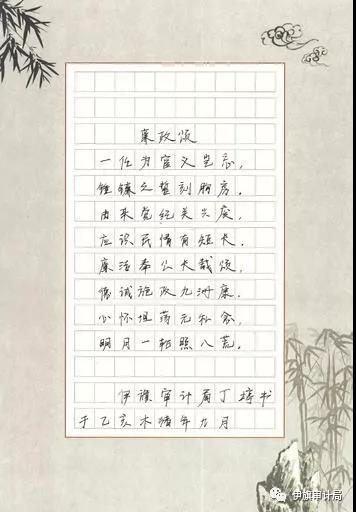 廉政颂
一任为官义岂忘，
锤镰之誓刻胸房。
由来党纪关兴废，
应识民情有短长。
廉洁奉公长哉颂，
德诚施政九洲康。
心怀坦荡无私念，
明月一轮照八荒。
伊旗审计局丁琦书
于乙亥木猪年九月
伊旗审计局